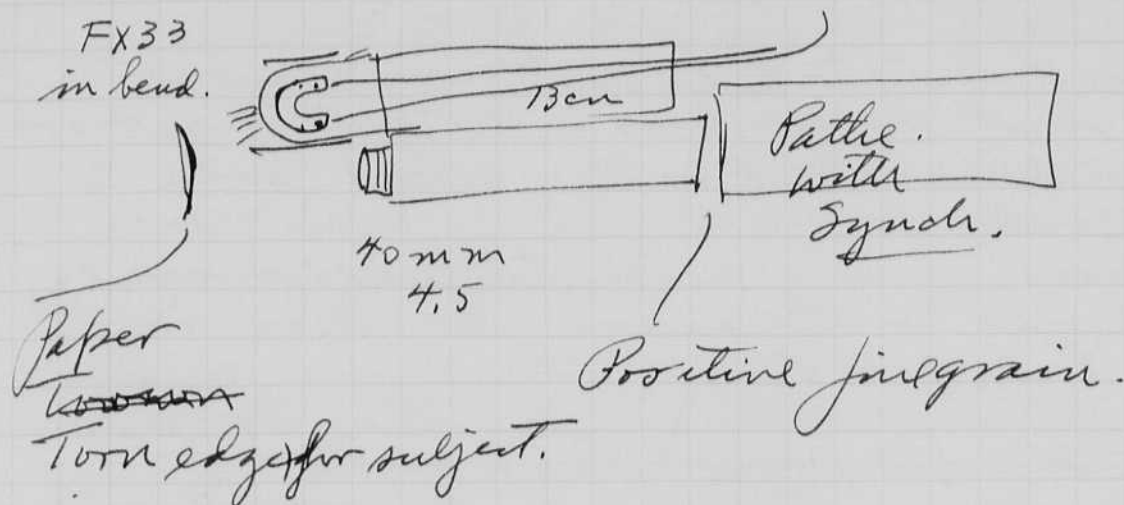 FX33
in bend.
Ben
Pathe.
with
Synch.
40mm
4.5
Paper
Torn edge for subject.
Positive finegrain.